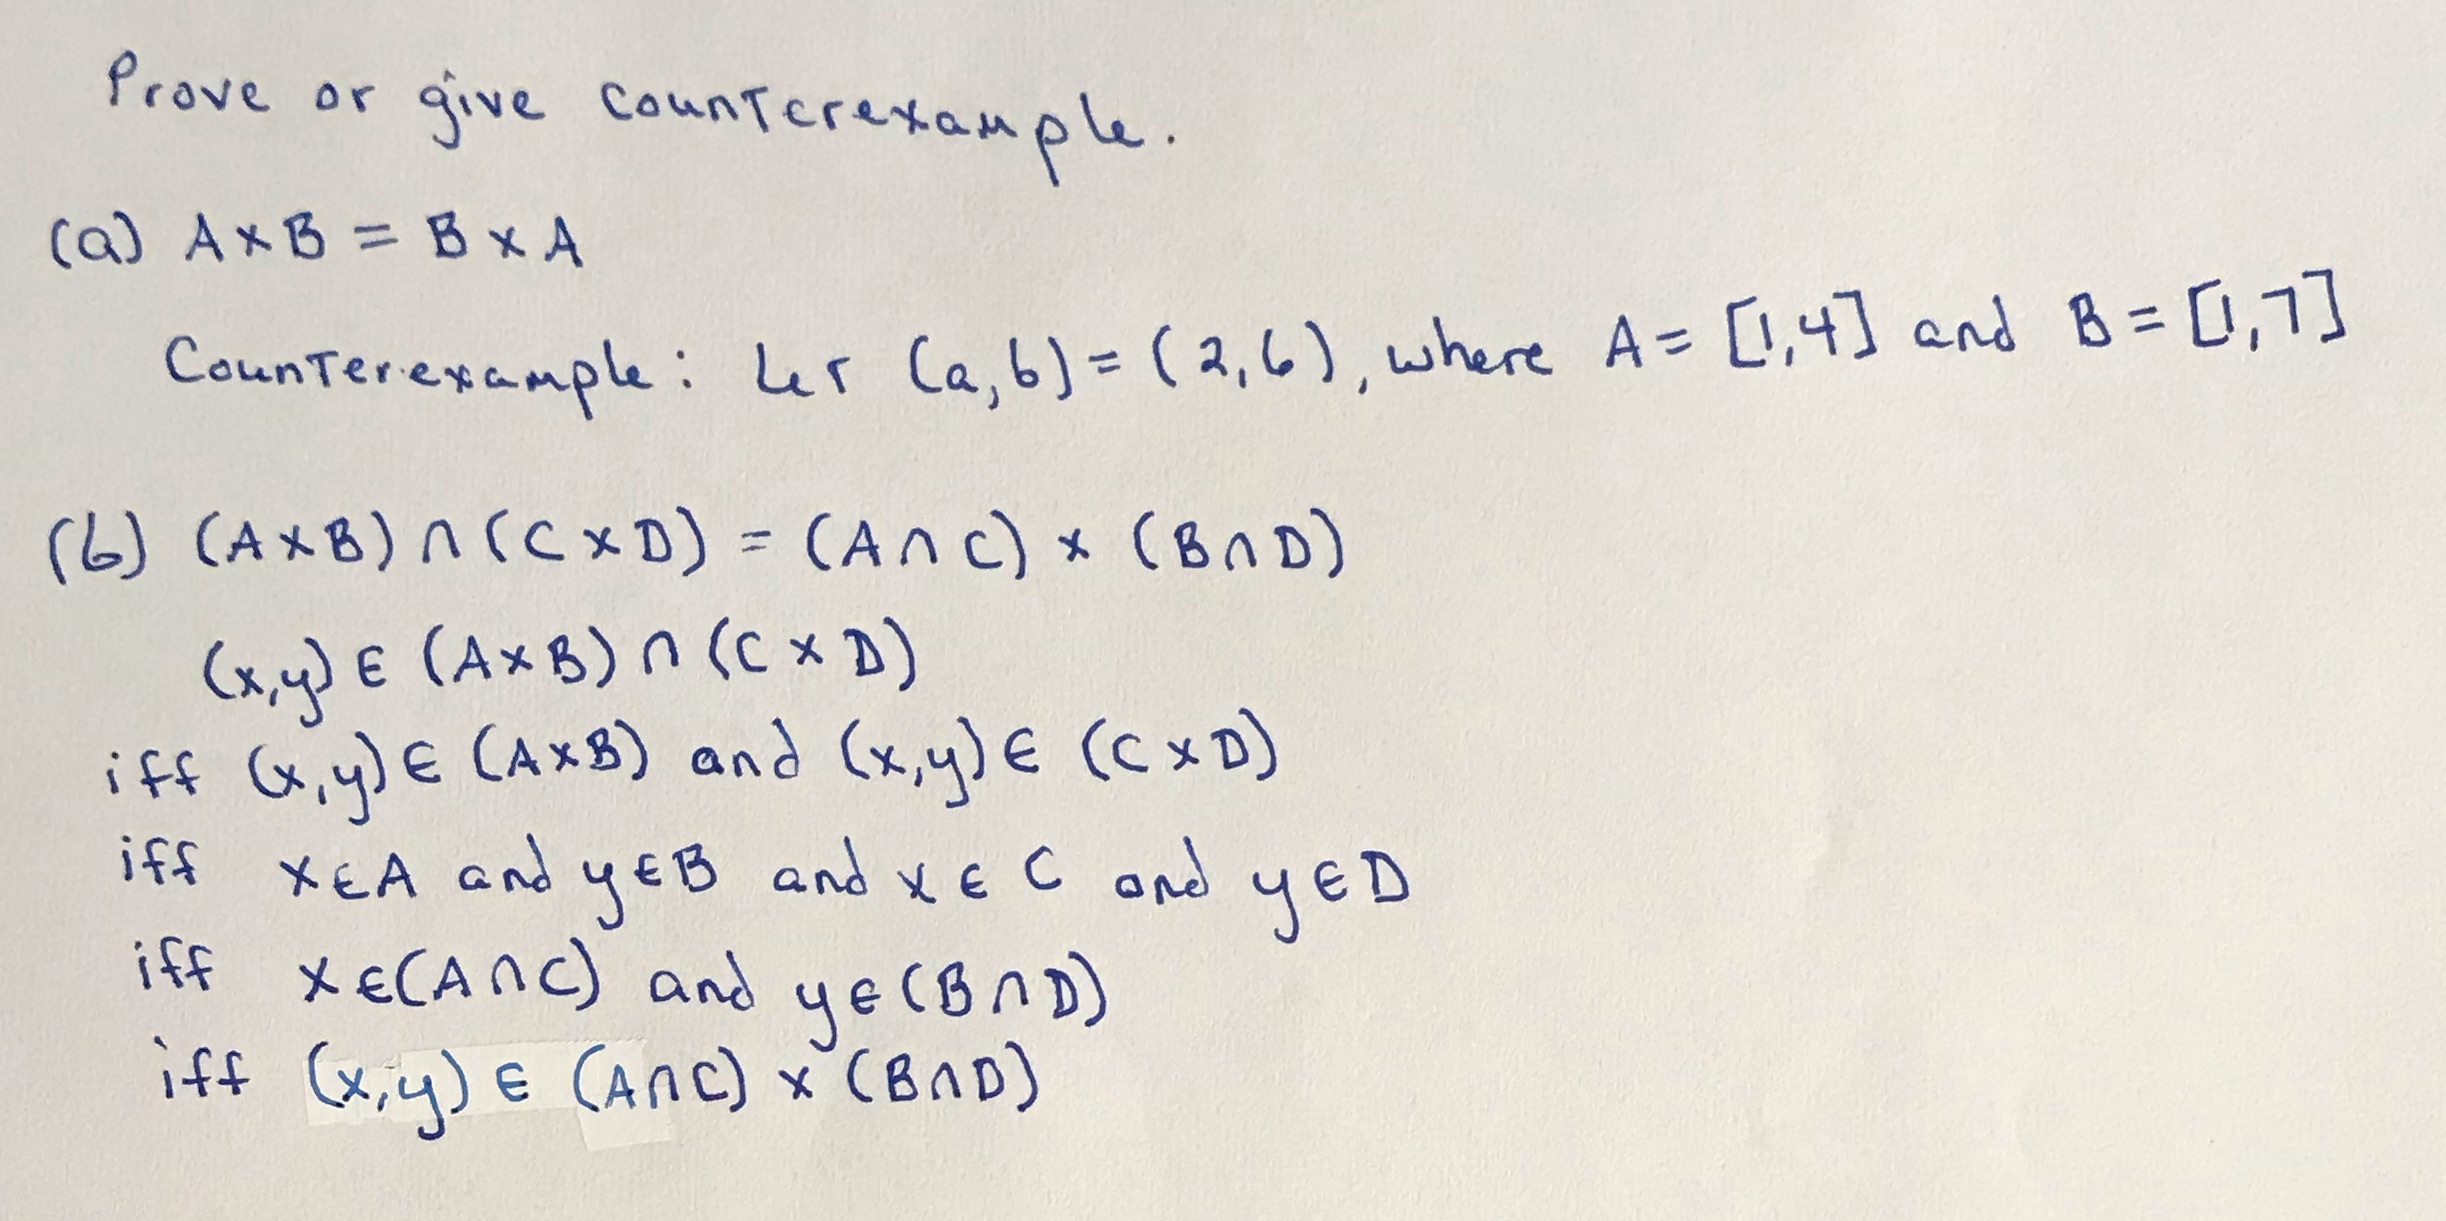 Prove or give counterexample.
(a) A × B = B × A
Counterexample: Let (a,b) = (2,6), where A = [1,4] and B = [1,7]
(b) (A × B) ∩ (C × D) = (A ∩ C) × (B ∩ D)
(x,y) ∈ (A × B) ∩ (C × D)
iff (x,y) ∈ (A × B) and (x,y) ∈ (C × D)
iff x ∈ A and y ∈ B and x ∈ C and y ∈ D
iff x ∈ (A ∩ C) and y ∈ (B ∩ D)
iff (x,y) ∈ (A ∩ C) × (B ∩ D)